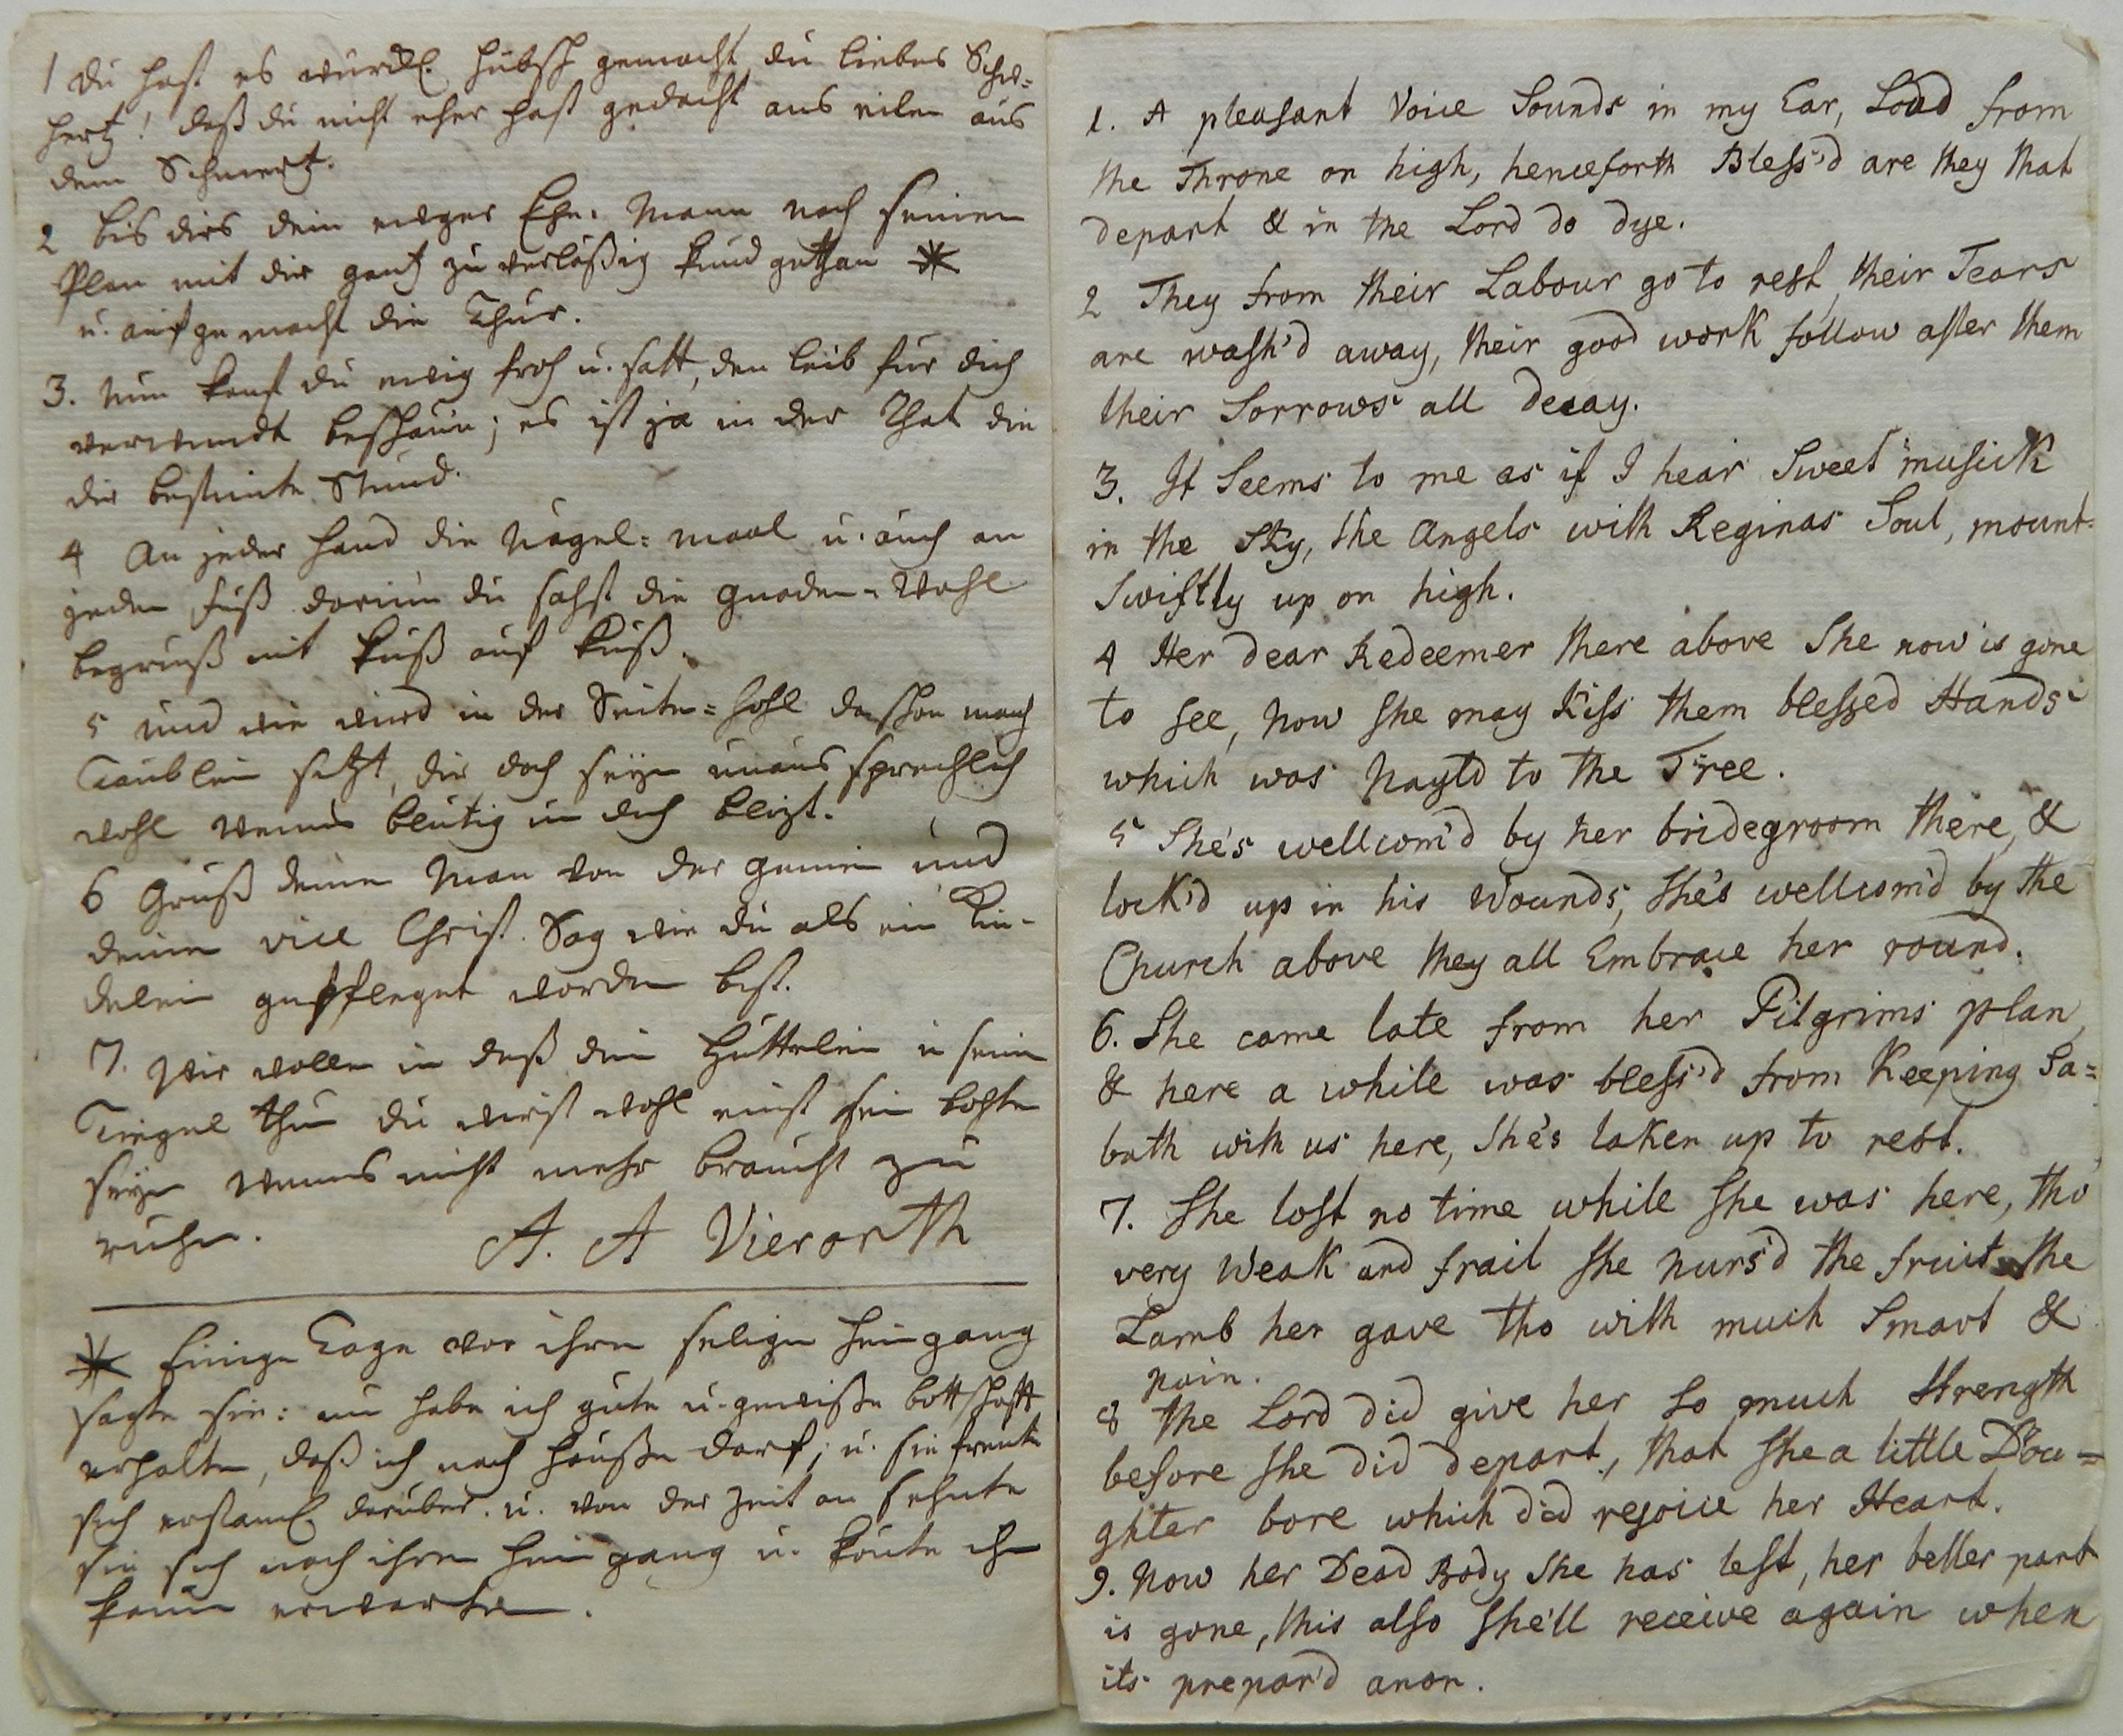 1 Du hast es würckl. hübsch gemacht du liebes Schw=
hertz! daß du nicht eher hast gedacht aus eilen aus
dem Schmertz.
2 bis dirs dein ewger Ehe: Mann nach seinen
Plan mit dir gantz zuverläßig kund gethan *
u. aufgemacht die Thür.
3. Nun kanst du ewig froh u. satt, den leib für dich
verwundt beschaun; es ist ja in der That die
dir bestimte Stund.
4 An jeder Hand die Nägel=maal u. auch an
jeden fuß darum du sahst die Gnaden=Wahl
begrüß mit kuß auf kuß.
5 und wie wird in der Seiten=Hohl da schon manch
Täublein sitzt, dir doch seyn unaussprechlich
wohl wenns blutig um dich blizt.
6 Grüß deinen Man von der gemein und
deinen Christ. Sag wie du als ein Kin-
delein gepfleget worden bist.
7. Wir wollen in deß dein Hüttelein in sein
Tiegel thun du wirst wohl einst sein
seyn wenns nicht mehr braucht zu
ruhn. A. A Vieroorth
* Einige Tage vor ihren seligen heimgang
sagte sie: nu habe ich gute u. gewiße bottschafft
erhalten, daß ich nach hauße darf; u. sie freute
sich erstaunl. darüber. u. von der zeit an sehnte
sie sich nach ihren heimgang u. konte ihn
kaum erwarten.
1. A pleasant Voice Sounds in my Ear, Loud from
the Throne on high, henceforth Bless'd are they that
depart & in the Lord do dye.
2 They from their Labour go to rest, their Tears
are wash'd away, their good work follow after them
their Sorrows all decay.
3. It Seems to me as if I hear Sweet musick
in the Sky, the Angels with Reginas Soul, mount-
Swiftly up on high.
4 Her dear Redeemer there above She now is gone
to see, now she may Kiss them blessed Hands
which was Nayld to the Tree.
5 She's wellcom'd by her bridegroom there, &
lock'd up in his Wounds, she's wellcom'd by the
Church above they all Embrace her round.
6. She came late from her Pilgrims plan,
& here a while was bless'd from Keeping Sa=
bath with us here, She's taken up to rest.
7. She lost no time while she was here, tho
very Weak and frail she nurs'd the fruit the
Lamb her gave tho with much Smart &
pain.
8 the Lord did give her so much Strength
before she did depart, that she a little Dou=
ghter bore which did rejoice her Heart.
9. Now her Dead Body She has left, her better part
is gone, this also she'll receive again when
its prepar'd anon.